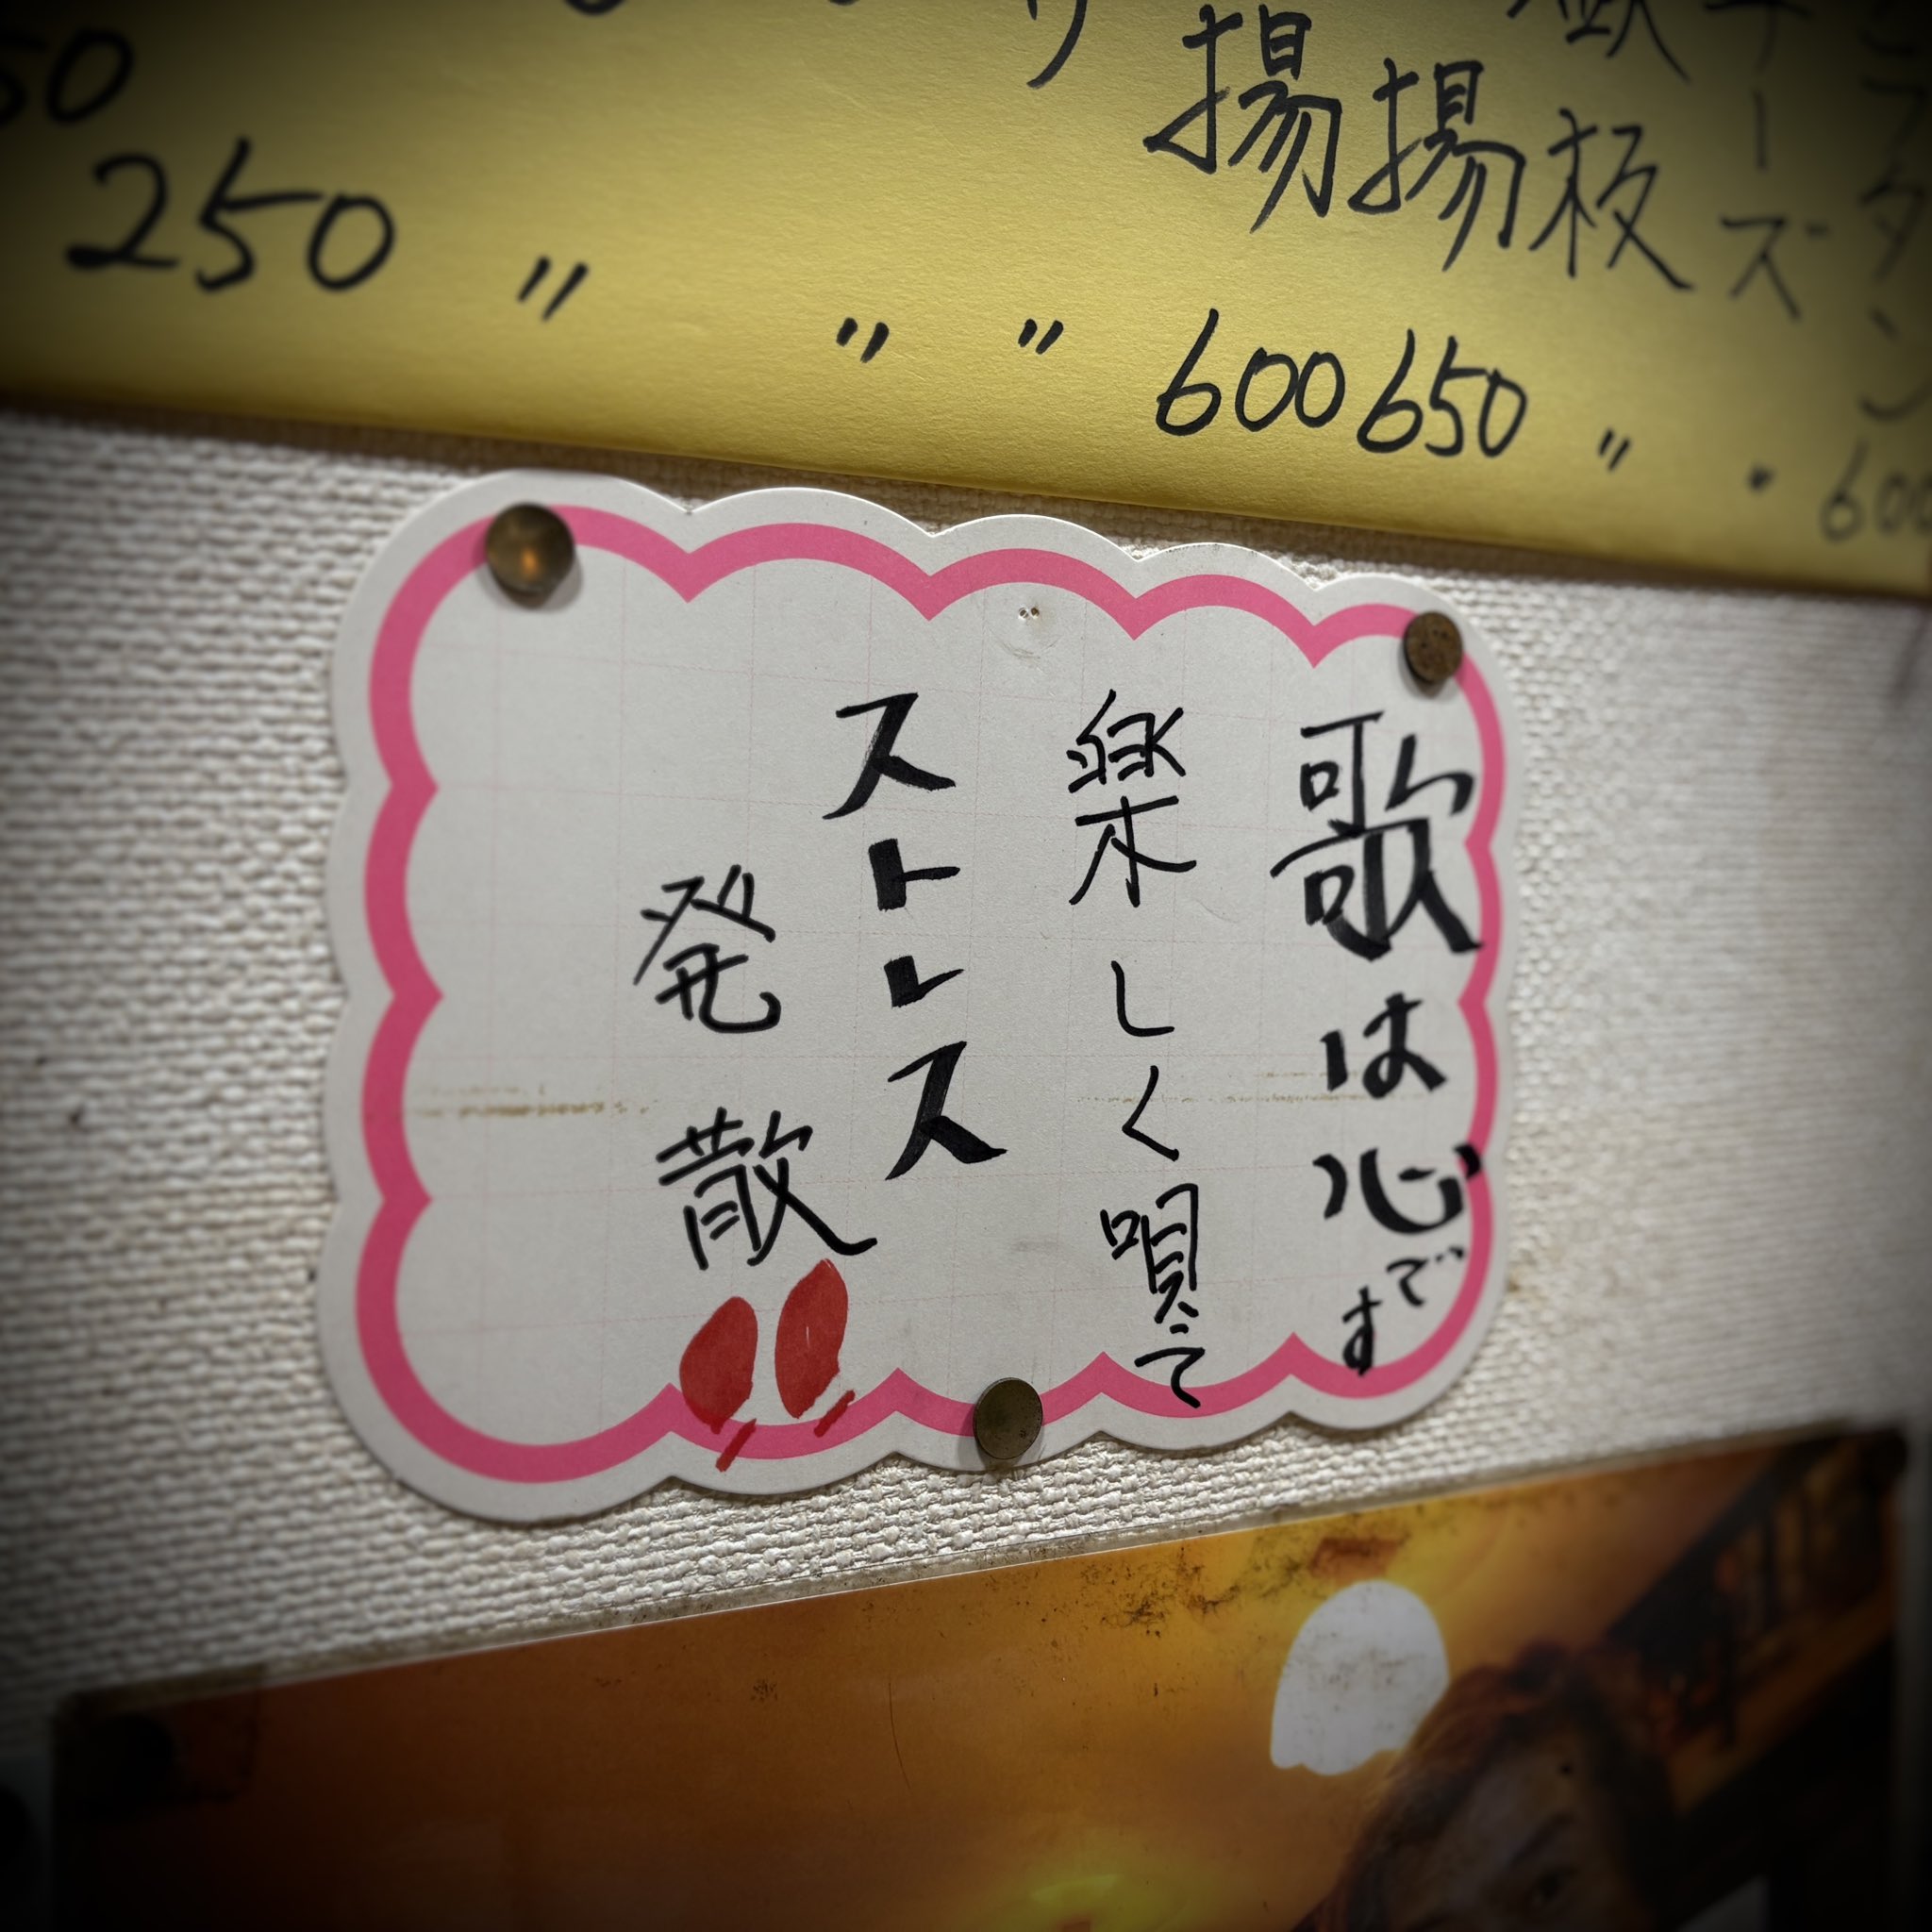 揚
揚
板
チーズ
250
〃
〃
〃
600
650
〃
歌は心です
楽しく唄って
ストレス
発散!!